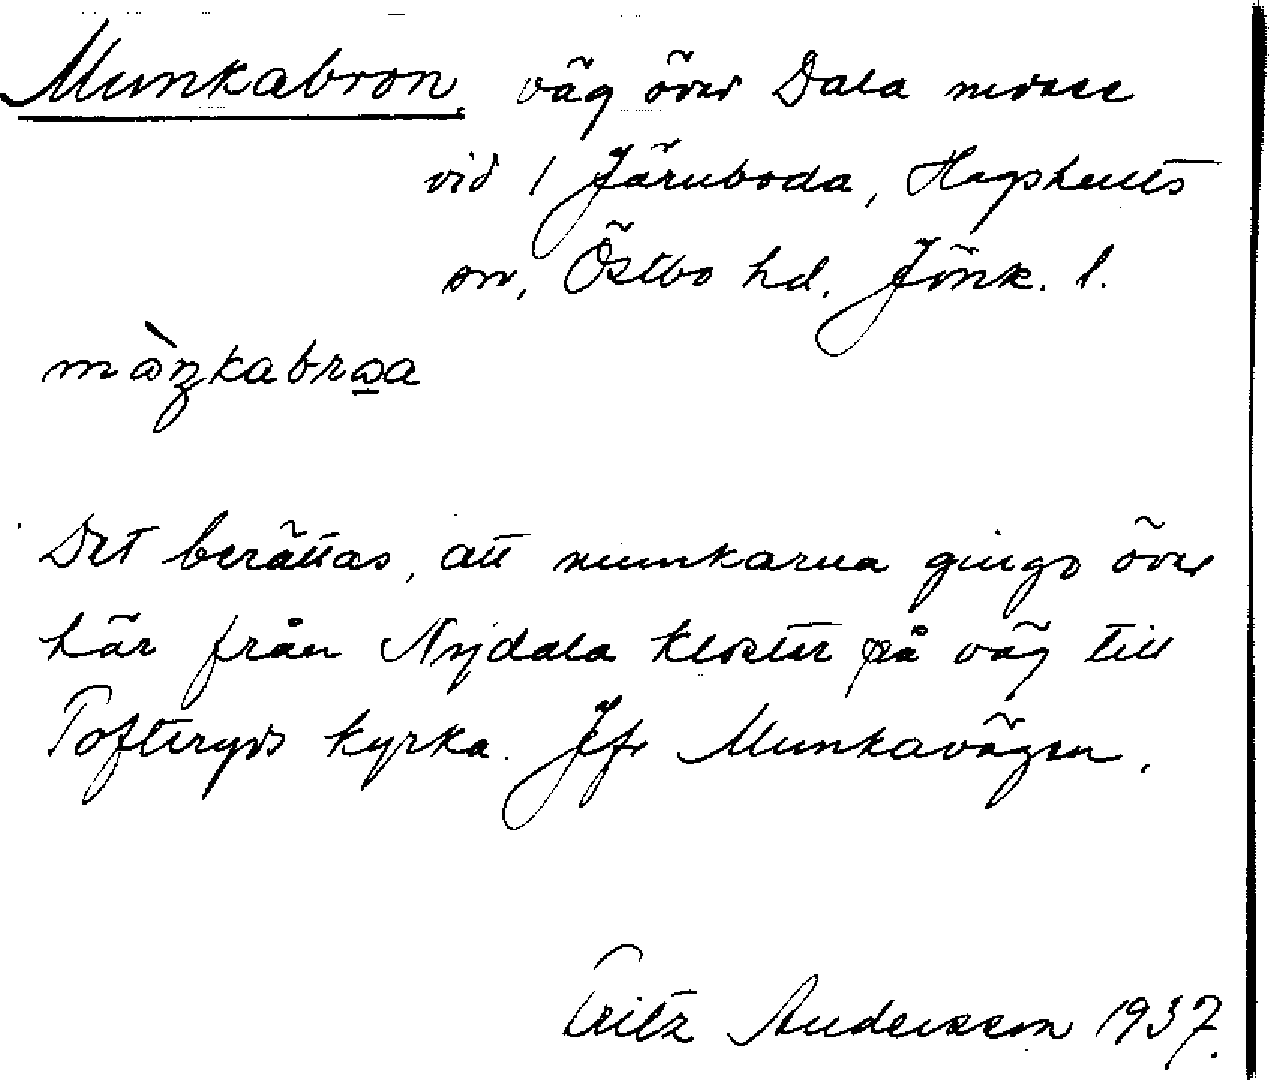 Munkabron. väg över Dala mosse
vid 1 Järnboda, Hagshults
sn, Östbo hd. Jönk. l.
Det berättas, att munkarna gingo över
här från Nydala kloster på väg till
Tofteryds kyrka. Jfr Munkavägen.
Fritz Andersson 1937.